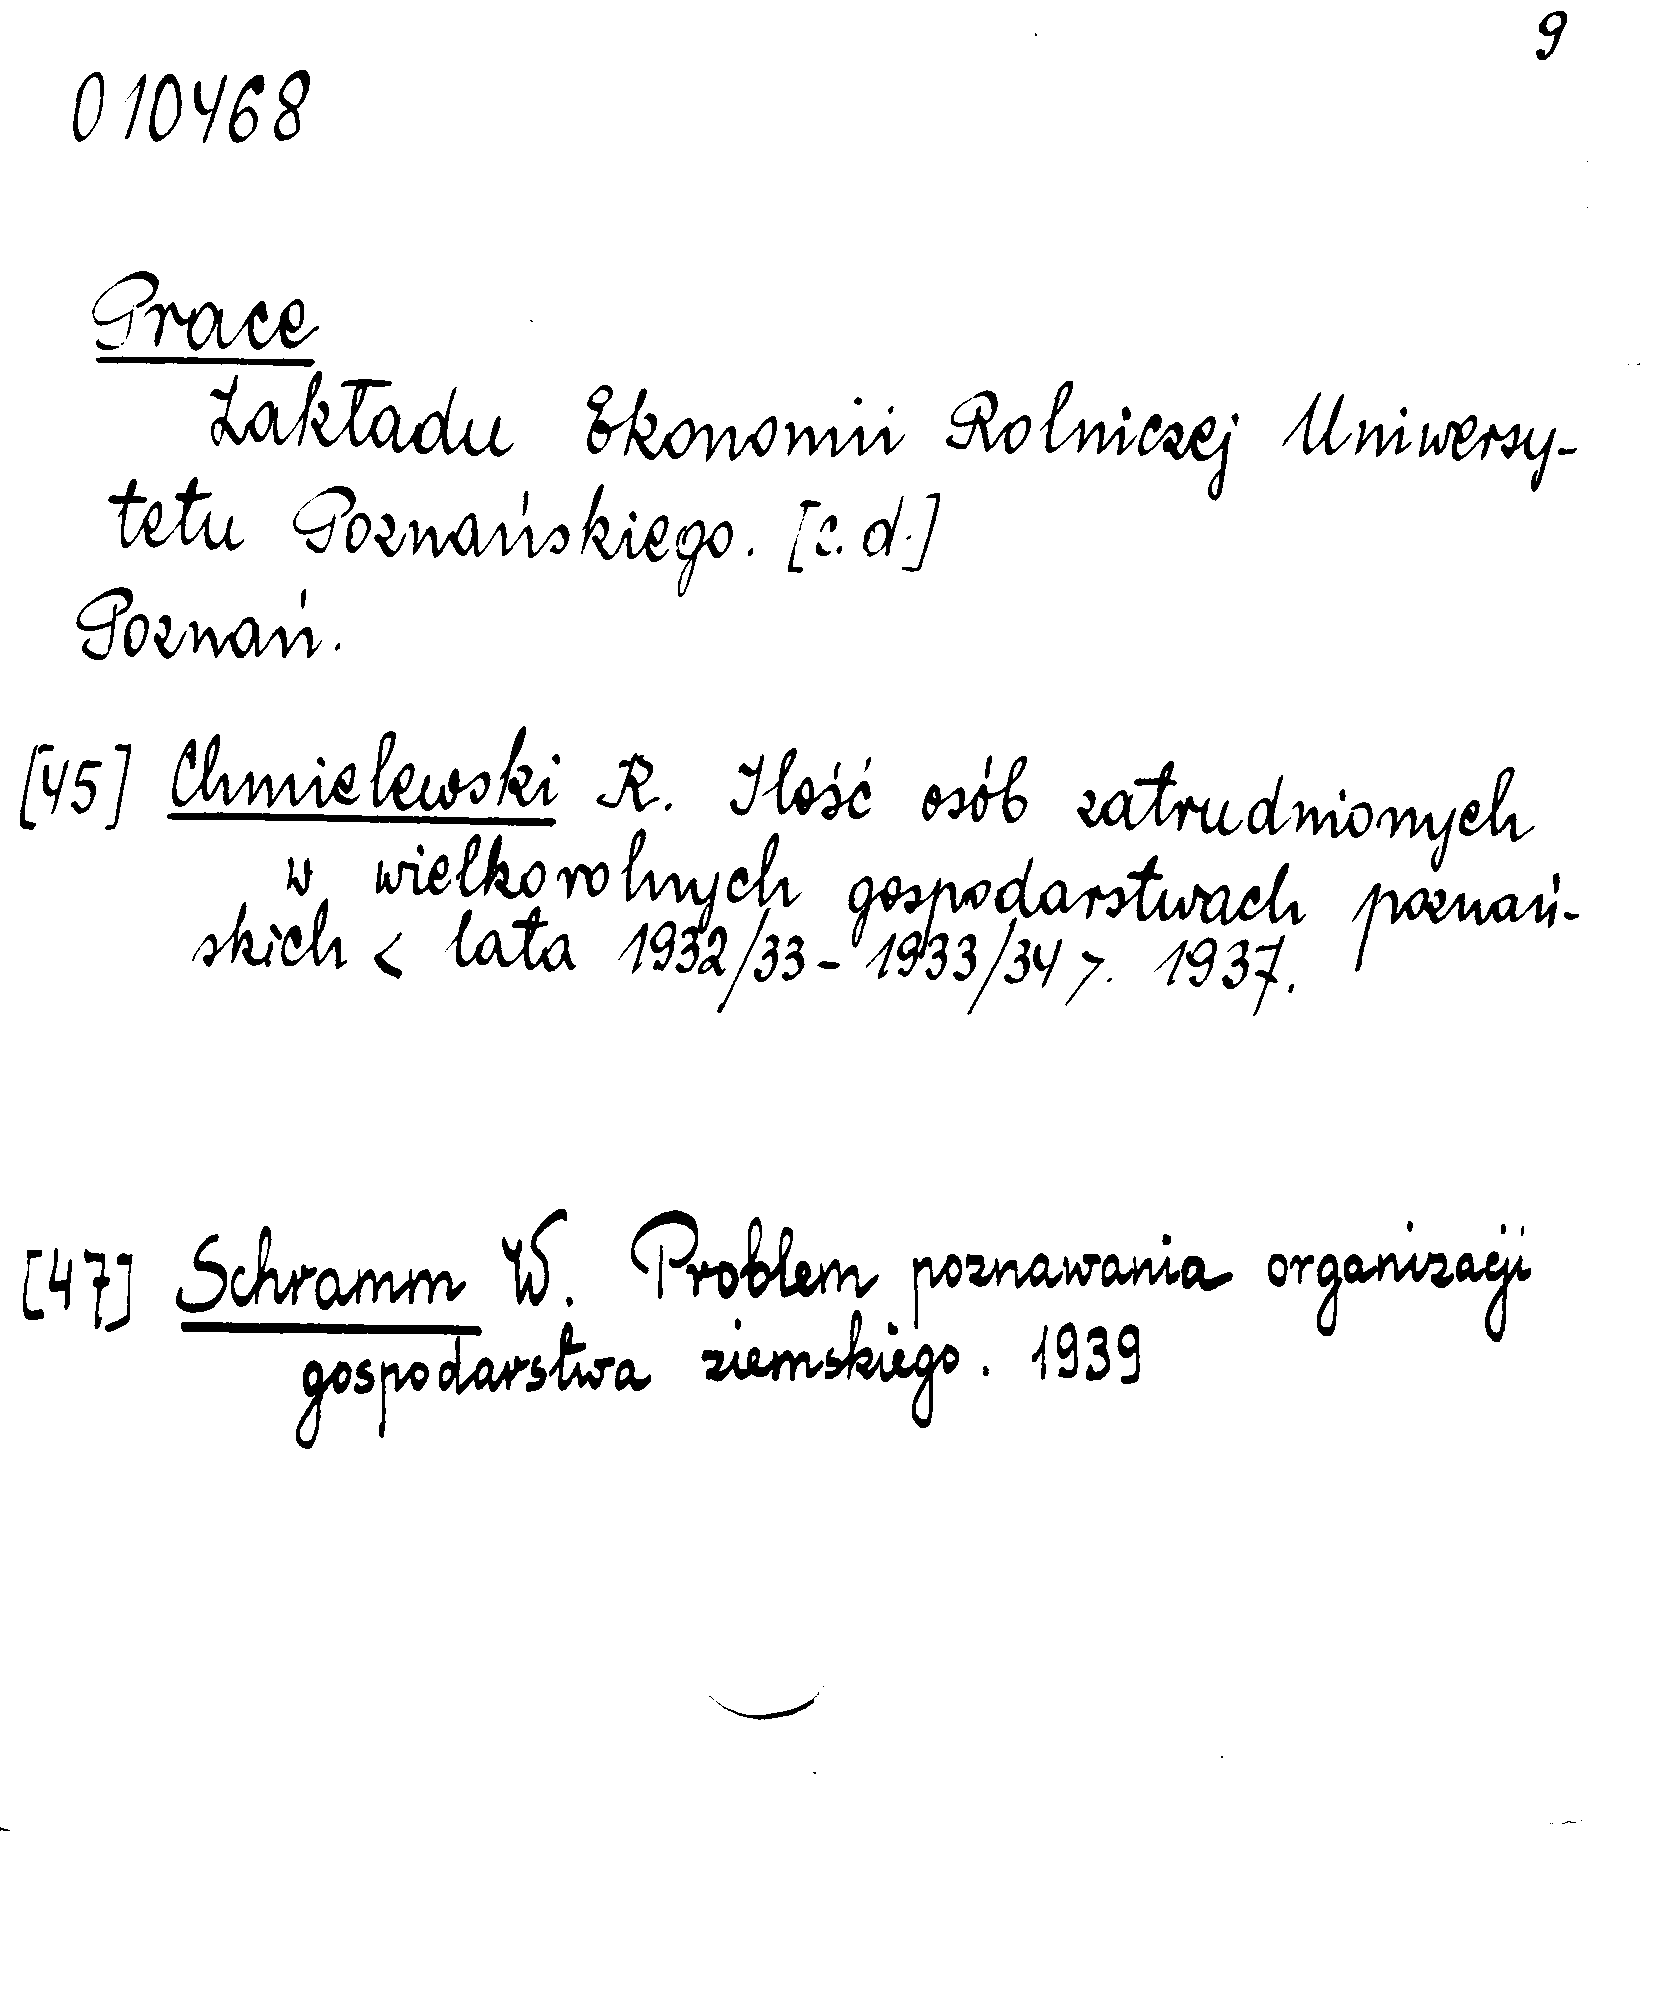 9
010468
Prace
Zakładu Ekonomii Rolniczej Uniwersy-
tetu Poznańskiego. [c.d.]
Poznań.
[45] Chmielewski R. Ilość osób zatrudnionych
w wielkorolnych gospodarstwach poznań-
skich < lata 1932/33 - 1933/34 >. 1937.
[47] Schramm W. Problem poznawania organizacji
gospodarstwa ziemskiego. 1939